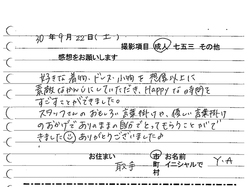 30年9月22日(土)
撮影項目 成人 七五三 その他
感想をお願いします
好きな着物、ドレス、小物を想像以上に
素敵なかんじにしていただき、Happyな時間を
すごすことができました。
スタッフさんのおもしろい言葉掛けや、優しい言葉掛け
のおかげでありのままの自分でとってもらうことがで
きました☺ありがとうございました♪
お住まい 取手 市町村 お名前 イニシャルで Y.A